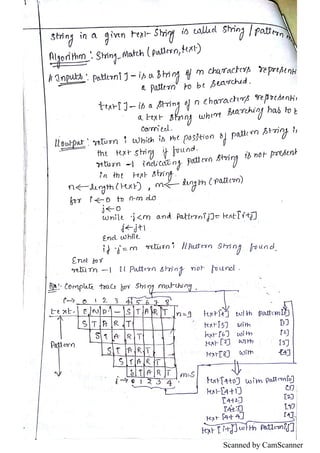 string in a given text-string is called string / pattern
Algorithm : String_Match (pattern, text)
// Inputs : pattern[] - is a string of m characters represent
a pattern to be searched.
text[] - is a string of n characters representi
a text string where searching has to b
carried.
// output : return i which is the position of pattern string i
the text string if found.
return -1 indicating pattern string is not present
in the text string.
n ← length (text) , m ← length (pattern)
for i ← 0 to n-m do
j ← 0
while j<m and Pattern[j] = text[i+j]
j ← j+1
End while
if j=m return i // Pattern string found.
End for
return -1 // Pattern string not found.
Ex:- Complete trace for string matching.
i→ 0 1 2 3 4 5 6 7 8
text. E N D - S T A R T n=9
S T A R T
S T A R T
Pattern S T A R T
S T A R T
S T A R T m=5
j→ 0 1 2 3 4
text[4] with pattern[0]
text[5] with [1]
text[6] with [2]
text[7] with [3]
text[8] with [4]
text[4+0] with pattern[0]
text[4+1] [1]
[4+2] [2]
[4+3]
text[4+4] [4]
text[i+j] with Pattern[j]
Scanned by CamScanner